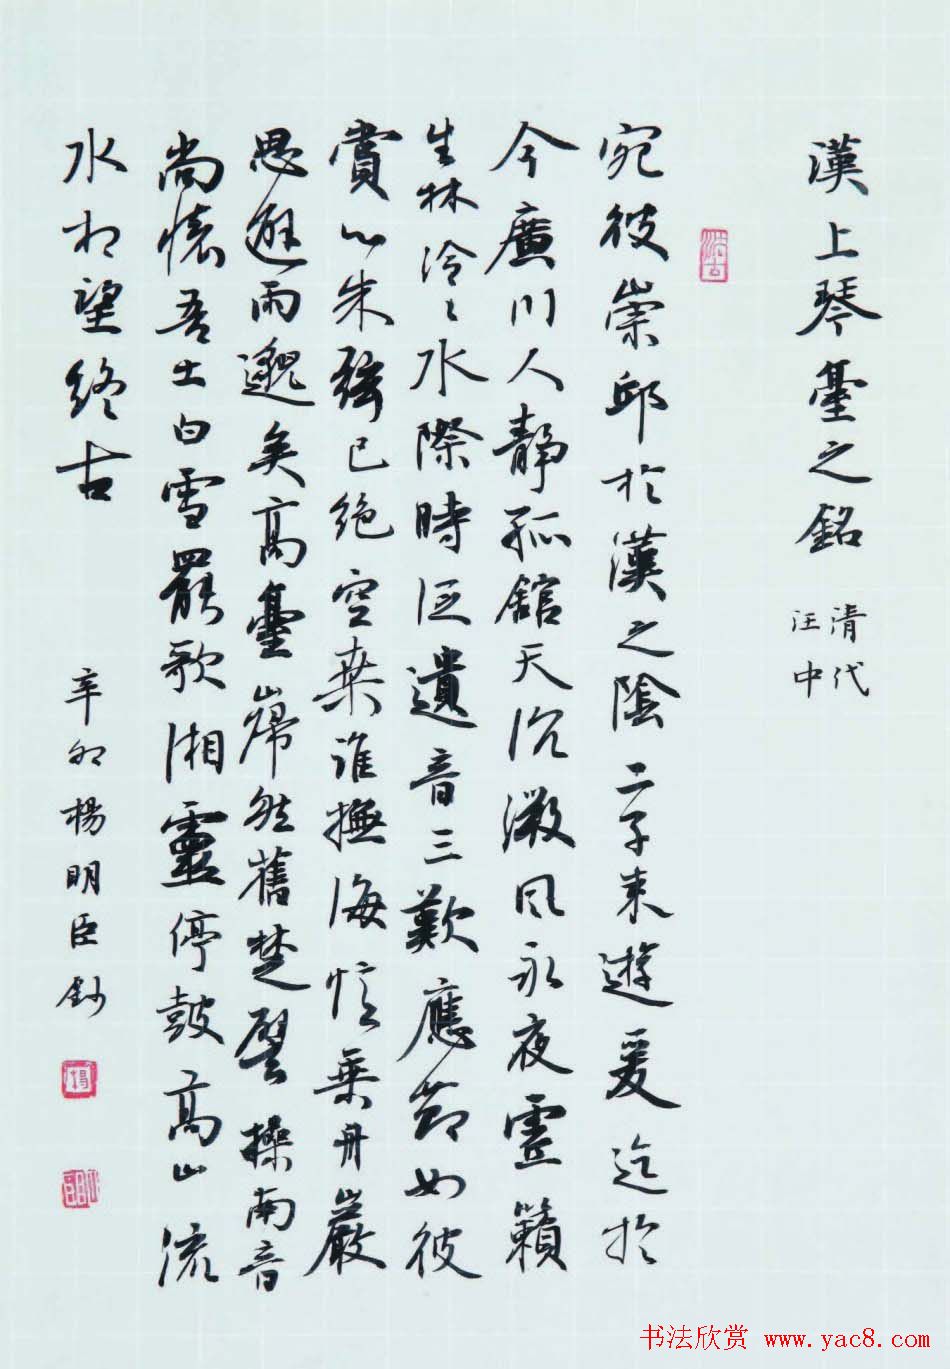 漢上琴臺之銘
清代
汪中
宛彼崇邱於漢之陰二子来遊爰迄於
今廣川人靜孤館天沉微風永夜靈籟
生林泠〻水際時泛遺音三歎應節如彼
賞心朱弦已绝空桑誰撫海憶乗舟巖
思避雨邈矣高臺巋然舊楚譬操南音
尚懷吾土白雪罷歌湘靈停鼓髙山流
水相望終古
辛卯楊明臣鈔
书法欣赏 www.yac8.com